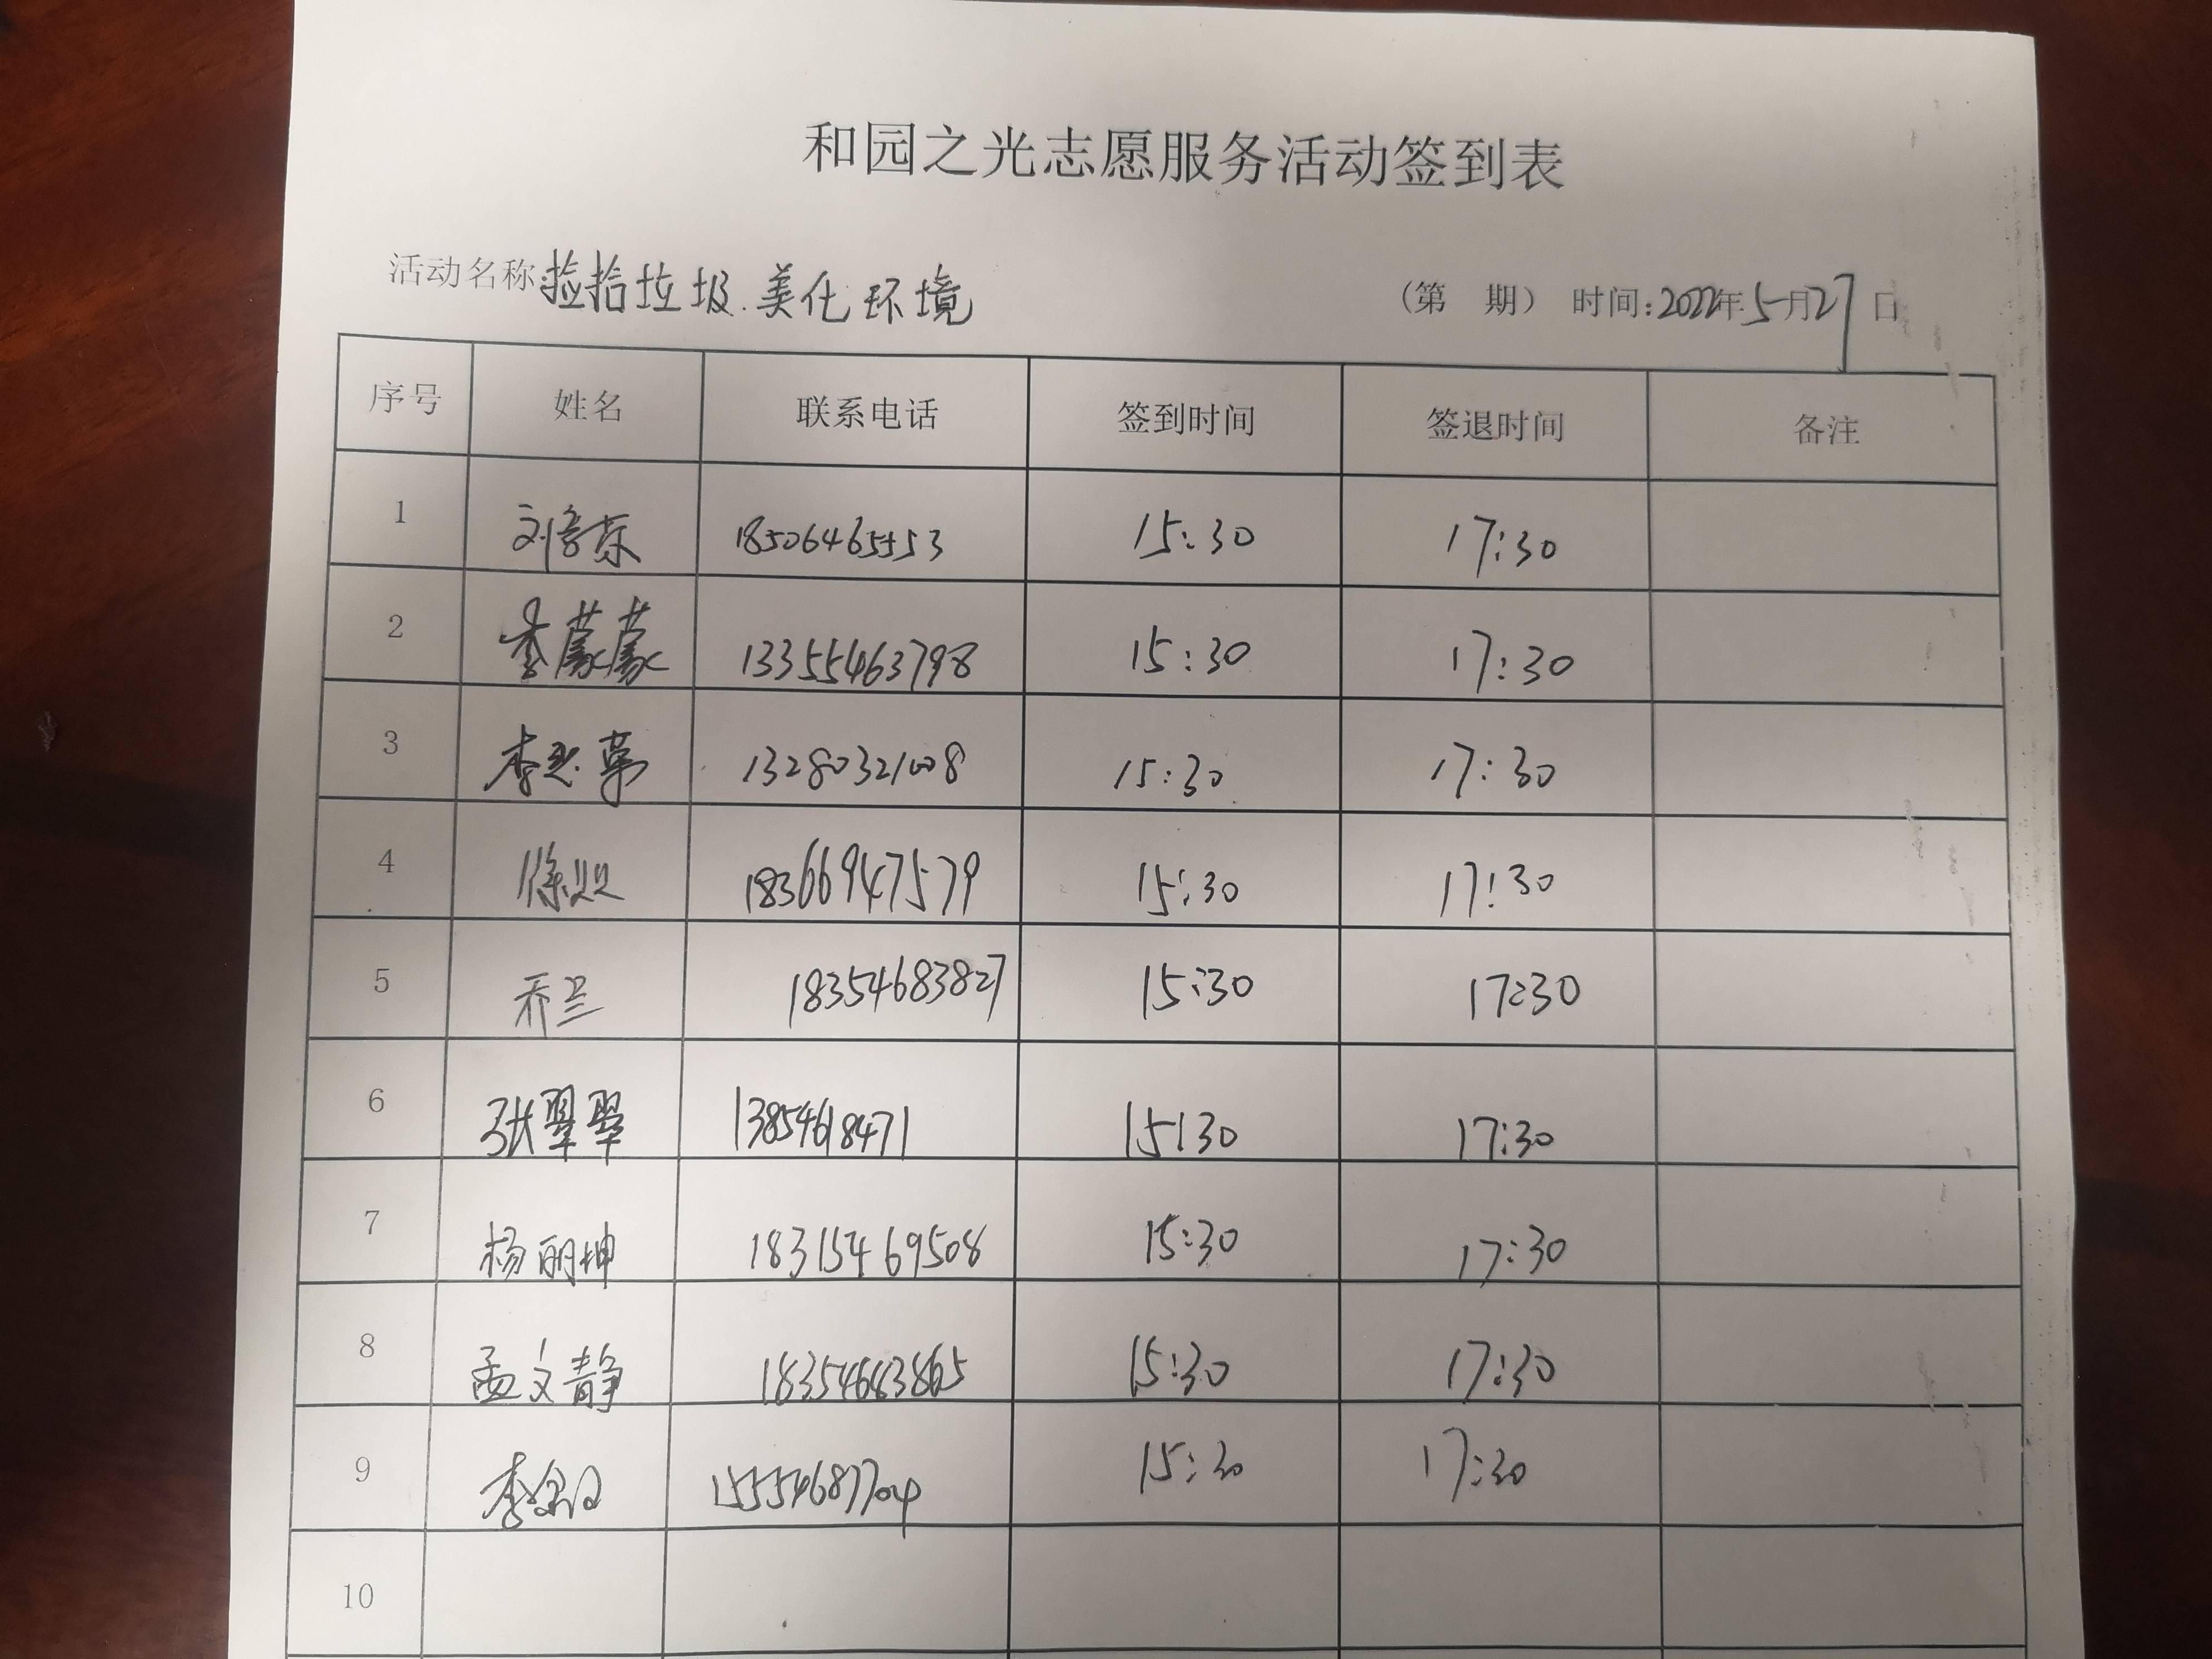 和园之光志愿服务活动签到表
活动名称:捡拾垃圾.美化环境 (第 期) 时间:2022年5月27日
序号 姓名 联系电话 签到时间 签退时间 备注
1 刘 18506465553 15:30 17:30
2 李蒙蒙 13355463798 15:30 17:30
3 李 13280321008 15:30 17:30
4 徐 18366947579 15:30 17:30
5 乔兰 18354683827 15:30 17:30
6 张翠翠 13854618471 15:30 17:30
7 杨丽坤 18315469508 15:30 17:30
8 孟文静 18354683865 15:30 17:30
9 李 15554687704 15:30 17:30
10